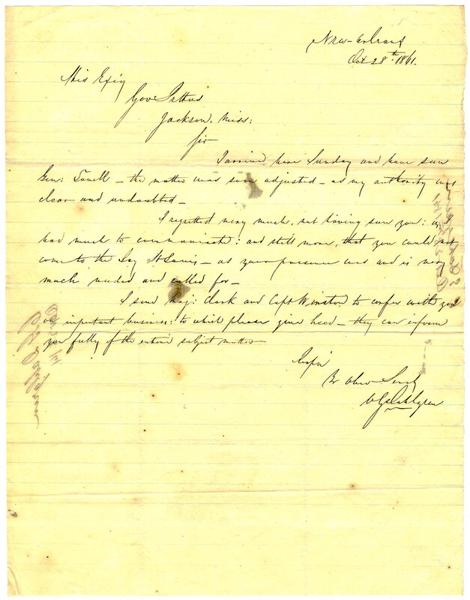 New-Orleans
Oct 28th 1861.
His Exly
Gov: Pettus
Jackson, Miss:
Sir
I arrived here Sunday and have seen
Genl: Twiggs - the matter was soon adjusted - as my authority was
clear and undoubted -
I regretted very much, not having seen you: as I
had much to communicate: and still more, that you could not
come to the Bay St Louis - as your presence was and is very
much needed and called for -
I send Maj: Clark and Capt Winston to confer with you
on important business: to which please give heed - they can inform
you fully of the entire subject matter -
Yr Obt Servt
C G Dahlgren